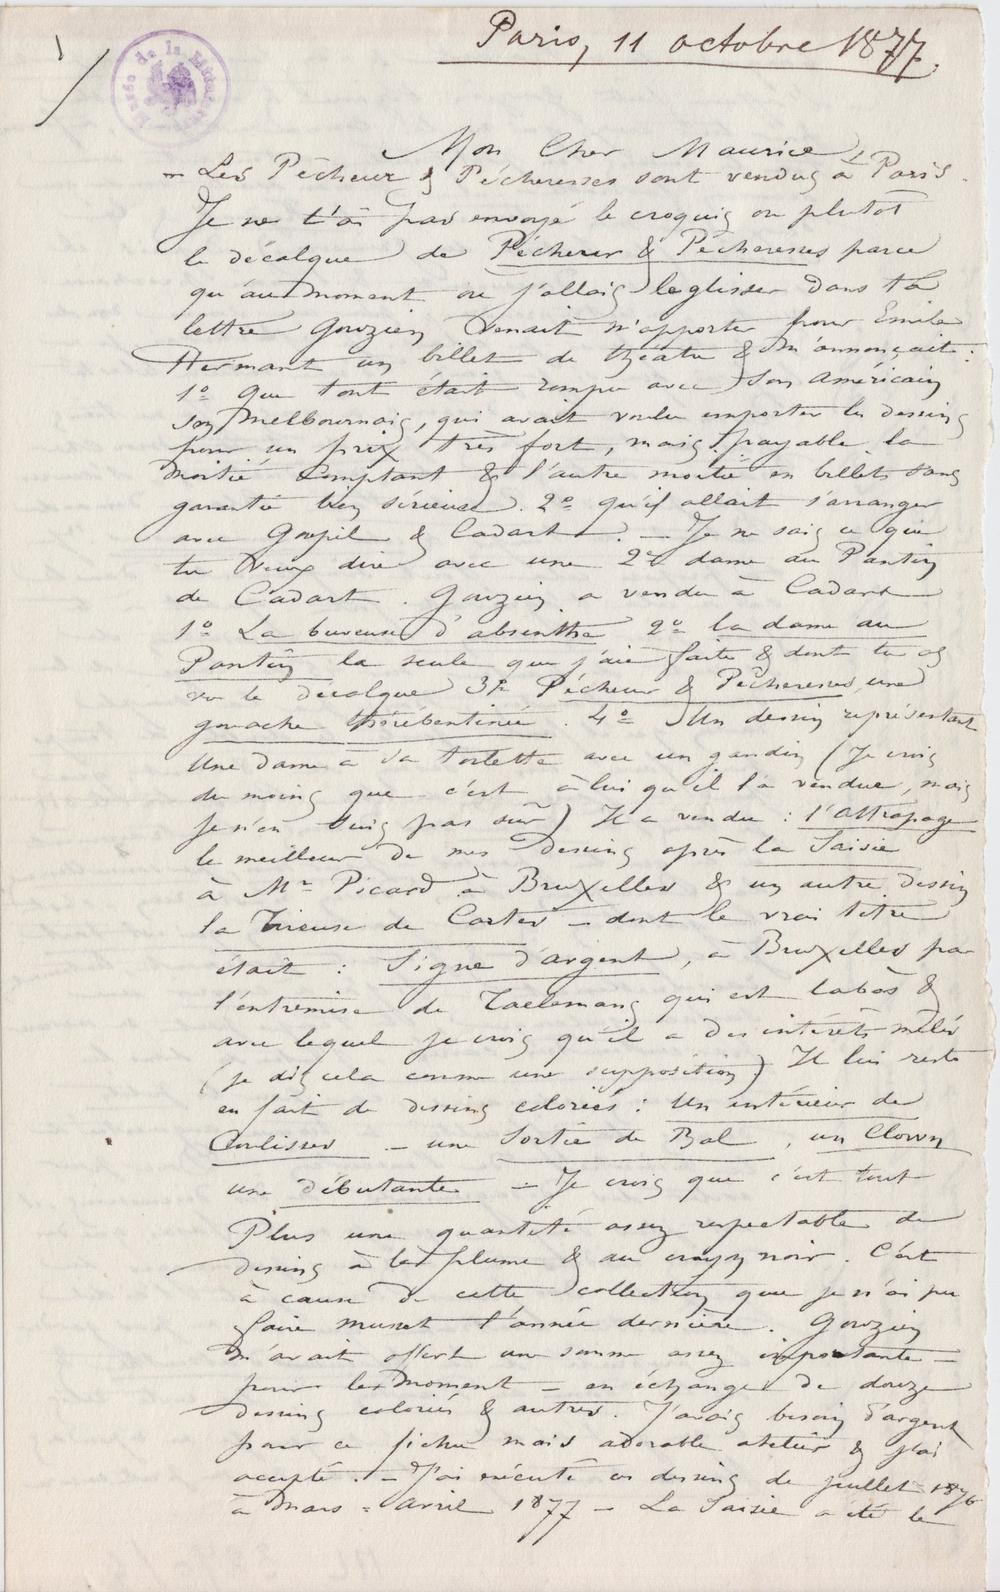 Paris, 11 octobre 1877.
Musée de la
Mon Cher Maurice,
— Les Pécheur & Pécheresses sont vendus à Paris.
Je ne t'ai pas envoyé le croquis ou plutot
le décalque de Pécheur & Pécheresses parce
qu'au moment ou j'allais le glisser dans ta
lettre Gouzien venait m'apporter pour Emile
Hermant un billet de théatre & m'annonçait :
1º que tout était rompu avec son américain
son Melbournais, qui avait voulu emporter les dessins
pour un prix très fort, mais payable la
moitié comptant & l'autre moitié en billets sans
garantie bien sérieuse. 2º qu'il allait s'arranger
avec Goupil & Cadart. — Je ne sais ce que
tu veux dire avec une 2e dame au Pantin
de Cadart. Gouzien a vendu à Cadart
1º La buveuse d'absinthe 2º la dame au
Pantin la seule que j'aie faite & dont tu as
vu le décalque 3º Pécheur & Pécheresses, une
gouache thérébentinée. 4º Un dessin représentant
Une dame à sa toilette avec un gandin (Je crois
du moins que c'est à lui qu'il l'a vendue, mais
je n'en suis pas sûr) Il a vendu : l'Attrapage
le meilleur de mes dessins après la Saisie
à Mr Picard à Bruxelles & un autre dessin
la Tireuse de Cartes — dont le vrai titre
était : Signe d'argent, à Bruxelles par
l'entremise de Taelemans qui est labàs &
avec lequel je crois qu'il a des intérêts mêlés
(je dis cela comme une supposition) Il lui reste
en fait de dessins coloriés : Un intérieur de
Coulisses — une Sortie de Bal, un Clown
une débutante — Je crois que c'est tout
Plus une quantité assez respectable de
dessins à la plume & au crayon noir. C'est
à cause de cette collection que je n'ai pu
faire l'année dernière. Gouzien
m'avait offert une somme assez importante —
pour le moment — en échange de douze
dessins coloriés & autres. J'avais besoin d'argent
pour ce fichu mais adorable atelier & j'ai
accepté. — J'ai exécuté ces dessins de juillet 1876
à Mars = avril 1877 — La Saisie a été le